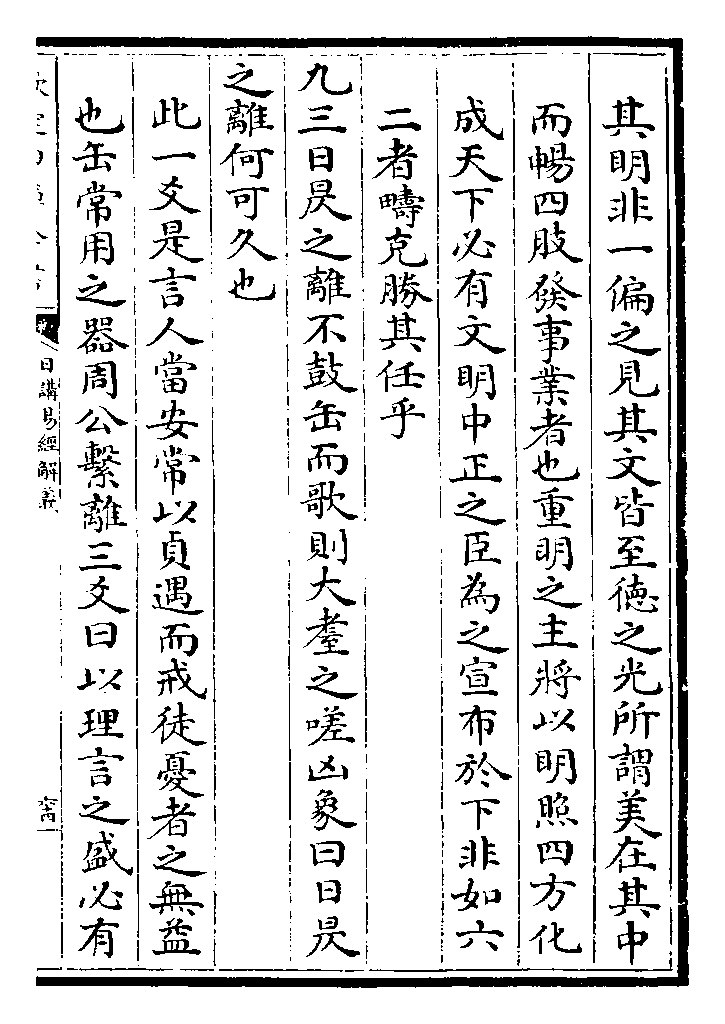 其明非一偏之見其文皆至徳之光所謂美在其中
而暢四肢發事業者也重明之主將以明照四方化
成天下必有文明中正之臣為之宣布於下非如六
二者疇克勝其任乎
九三日昃之離不鼓缶而歌則大耋之嗟凶象曰日昃
之離何可久也
此一爻是言人當安常以貞遇而戒徒憂者之無益
也缶常用之器周公繫離三爻曰以理言之盛必有
日講易經解義